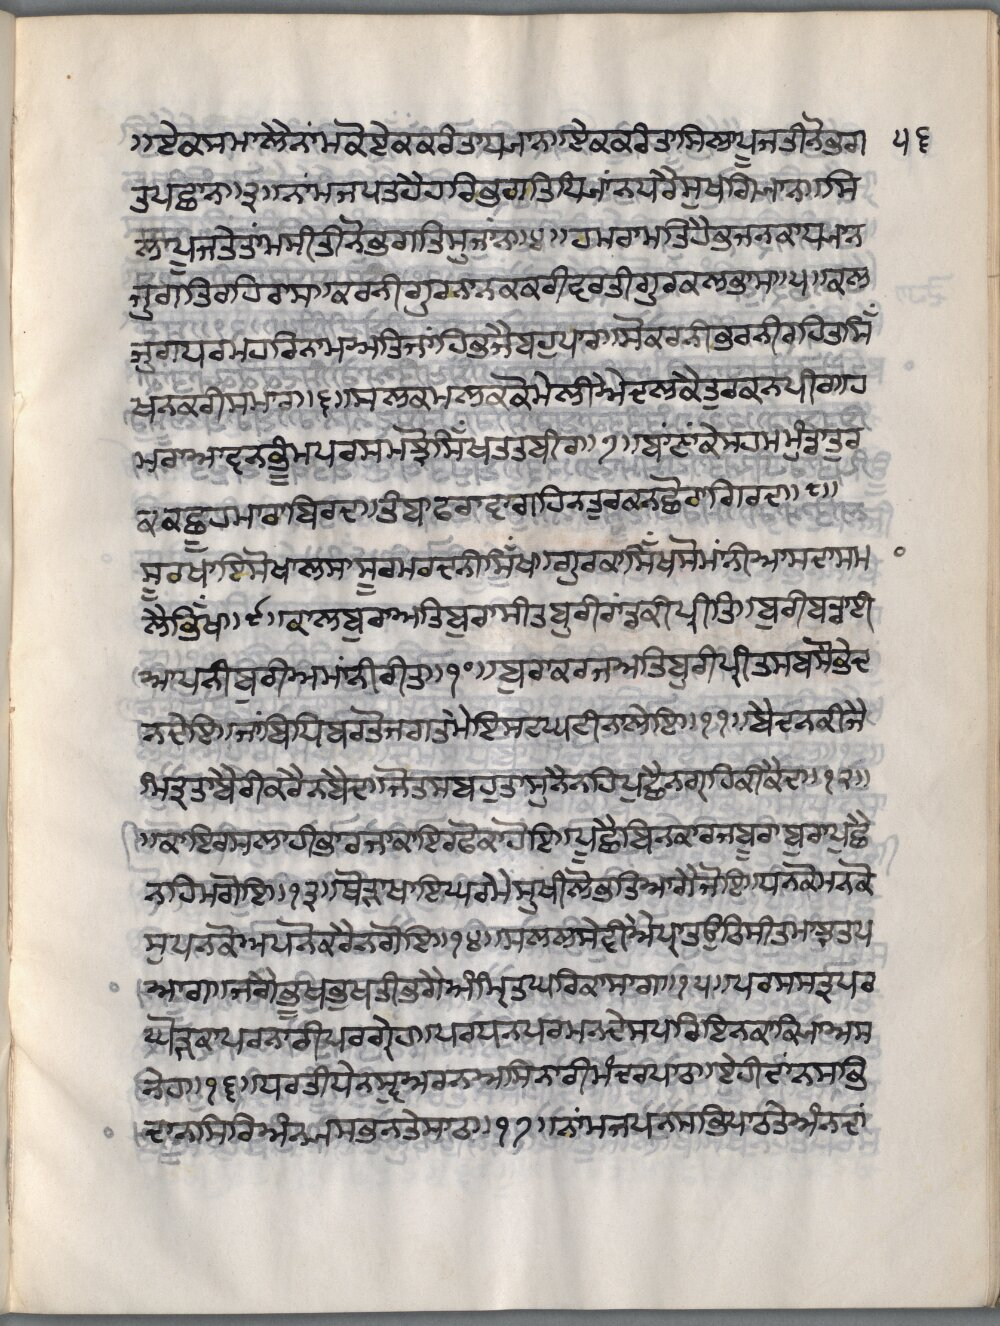 ॥ਏਕਸਮਾਲੈਨਾਂਮਕੋਏਕਕਰੀਤਾਧਯਾਨ॥ਏਕਕਰੀਤਾਸਿਲਾਪੂਜਤੀਨੋਭਗ ੫੬
ਤੁਪਛਾਨ॥੩॥ਨਾਂਮਜਪਤਹੈਹਰਿਭਗਤਿਧਿਆਂਨਧਰੈਸੁਖਗਿਆਨ॥ਸਿ
ਲਾਪੂਜਤੇਤਾਂਮਸੀਤੀਨੋਭਗਤਿਸੁਜਾਂਨ॥੪॥ਹਮਰਾਮਤਿਹੈਭਜਨਕਾਧਯਾਨ
ਜੁਗਤਿਰਹਿਰਾਸ॥ਕਰਨੀਗੁਰਨਾਨਕਕਰੀਵਰਤੀਗੁਰਕਲਭਾਸ॥੫॥ਕਲ
ਜੁਗਪਰਮਹਰਿਨਾਮਅਤਿਜਾਂਹਿਭਜੈਬਹੁਪਾਰ॥ਸੋਕਰਨੀਭਰਨੀਰਹਿਤਸਿੱ
ਖਨਕਰੀਸਮਾਰ॥੬॥ਸਲਕਮਲਕਕੋਮੇਲੀਐਦਲਕੈਤੁਰਕਨਪੀਰ॥ਹ
ਮਰਾਆਵਨਭੂਮਪਰਸਮਝੋਸਿੱਖਤਤਬੀਰ॥੭॥ਬਾਂਣਾਂਕੇਸਹਮਮੁੰਡਾਤੁਰ
ਕਕਛੂਹਮਾਰਾਬਿਰਦ॥ਤੀਖਾਢਰਾਵਾਗਹਿਨਤੁਰਕਨਛੋਰਾਗਿਰਦ॥੮॥
ਸੂਰਖਾਇਸੋਖਾਲਸਾਸੂਰਮਰਦਨੀਸਿੱਖ॥ਗੁਰਕਾਸਿੱਖਸੋਮਾਂਨੀਆਸਦਾਸਮ
ਲੈਭਿੱਖ॥੯॥ਕਾਲਬੁਰਾਅਤਿਬੁਰਾਸੀਤਬੁਰੀਰਾਂਡਕੀਪ੍ਰੀਤਿ॥ਬੁਰੀਬਡਾਈ
ਆਪਨੀਬੁਰੀਅਮਾਂਨੀਰੀਤ॥੧੦॥ਬੁਰਾਕਰਜਅਤਿਬੁਰੀਪ੍ਰੀਤਸਬਸੋਭੇਦ
ਨਦੇਇ॥ਜਾਂਬਿਧਿਬਰਤੋਜਗਤਮੇਇਸਟਘਟੀਨਲੇਇ॥੧੧॥ਬੈਦਨਕੀਜੈ
ਮਿਤ੍ਰਤਾਬੈਰੀਕਰੈਨਬੈਦ॥ਜੋਤਸਬਹੁਤਾਸੁਨੈਨਹਿਪੁਛੈਨਗ੍ਰਹਿਕੀਕੈਦ॥੧੨॥
॥ਕਾਇਰਸਲਾਹੀਭਾਰਜਾਕਾਇਰਟੇਕਾਹੋਇ॥ਪੂਛੈਬਿਨਕਾਰਜਬੂਰਾਬੁਰਾਪੁਛੈ
ਨਹਿਮਗੋਇ॥੧੩॥ਥੋੜਾਖਾਇਘਰਮੇਸੁਖੀਲੋਭਤਿਆਗੈਜੋਇ॥ਧਨਕੋਮਨਕੋ
ਸੁਪਨਕੋਅਪਨੋਕਰੈਨਰੋਇ॥੧੪॥ਸਲਲਸੇਵੀਐਪ੍ਰਾਤਉਠਿਸੀਤਮਾਝਤਪ
ਆਗ॥ਜਗੈਭੂਖਭੁਖਤੀਭਗੈਅੰਮ੍ਰਿਤਘਰਿਕਾਸਾਗ॥੧੫॥ਪਰਸਸਤ੍ਰਪਰ
ਘੋੜਕਾਪਰਨਾਰੀਪਰਗ੍ਰੇਹ॥ਪਰਧਨਪਰਮਨਦੇਸਪਰਿਇਨਕਾਕਿਆਅਸ
ਨੇਹ॥੧੬॥ਧਰਤੀਧੇਨਸੂਅਰਨਅਸਿਨਾਰੀਮੰਦਰਪਾਠ॥ਏਹੀਦਾਂਨਸਭਿ
ਦਾਨਸਿਰਿਅੰਨਜਸਭਨਤੇਸਾਠ॥੧੭॥ਨਾਂਮਜਪਨਸਭਿਪਾਠਤੇਅੰਨਦਾਂ